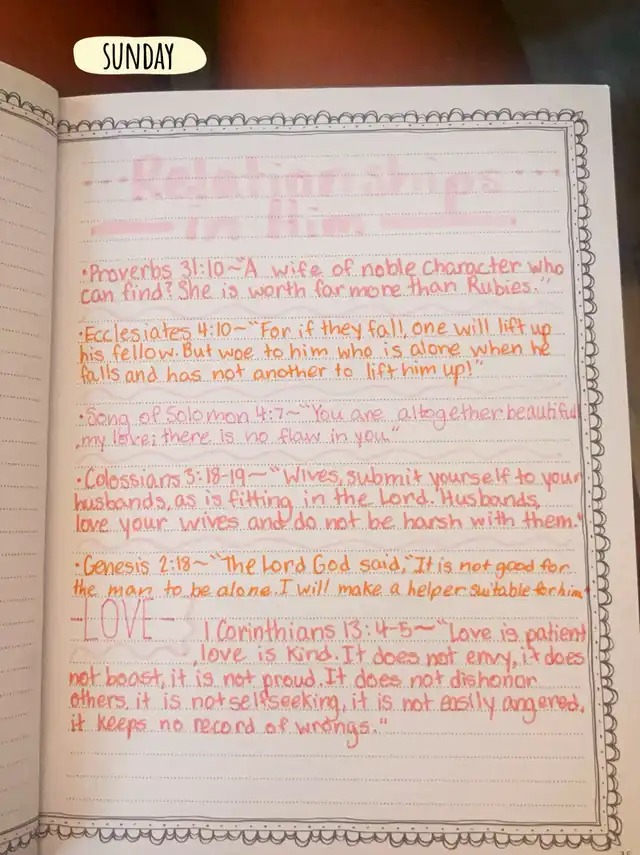 SUNDAY
Relationships
in Him
•Proverbs 31:10~"A wife of noble character who
can find? She is worth far more than Rubies."
•Ecclesiates 4:10~"For if they fall, one will lift up
his fellow. But woe to him who is alone when he
falls and has not another to lift him up!"
•Song of Solomon 4:7~"You are altogether beautiful
,my love; there is no flaw in you."
•Colossians 3:18-19~"Wives, submit yourself to your
husbands, as is fitting in the Lord. Husbands,
love your wives and do not be harsh with them."
•Genesis 2:18~"The Lord God said, "It is not good for
the man to be alone. I will make a helper suitable for him"
-LOVE-
1 Corinthians 13:4-5~"Love is patient
,love is kind. It does not envy, it does
not boast, it is not proud. It does not dishonor
others, it is not selfseeking, it is not easily angered,
it keeps no record of wrongs."